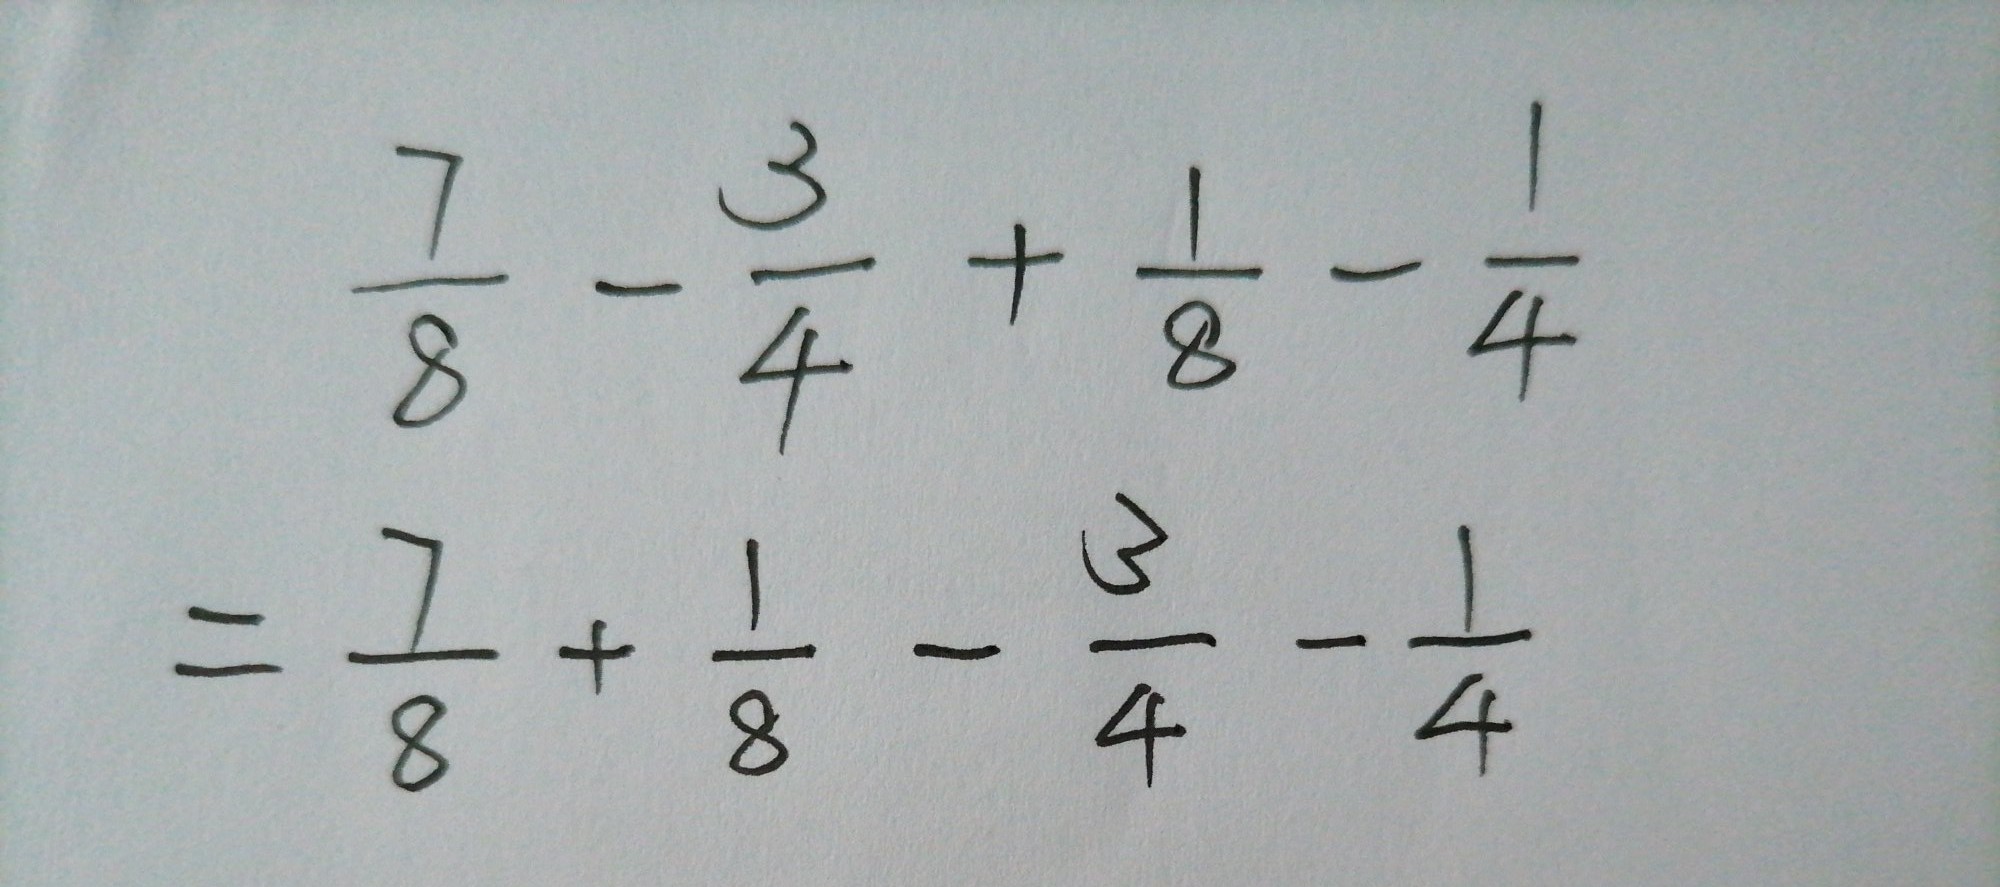 7/8 - 3/4 + 1/8 - 1/4
= 7/8 + 1/8 - 3/4 - 1/4